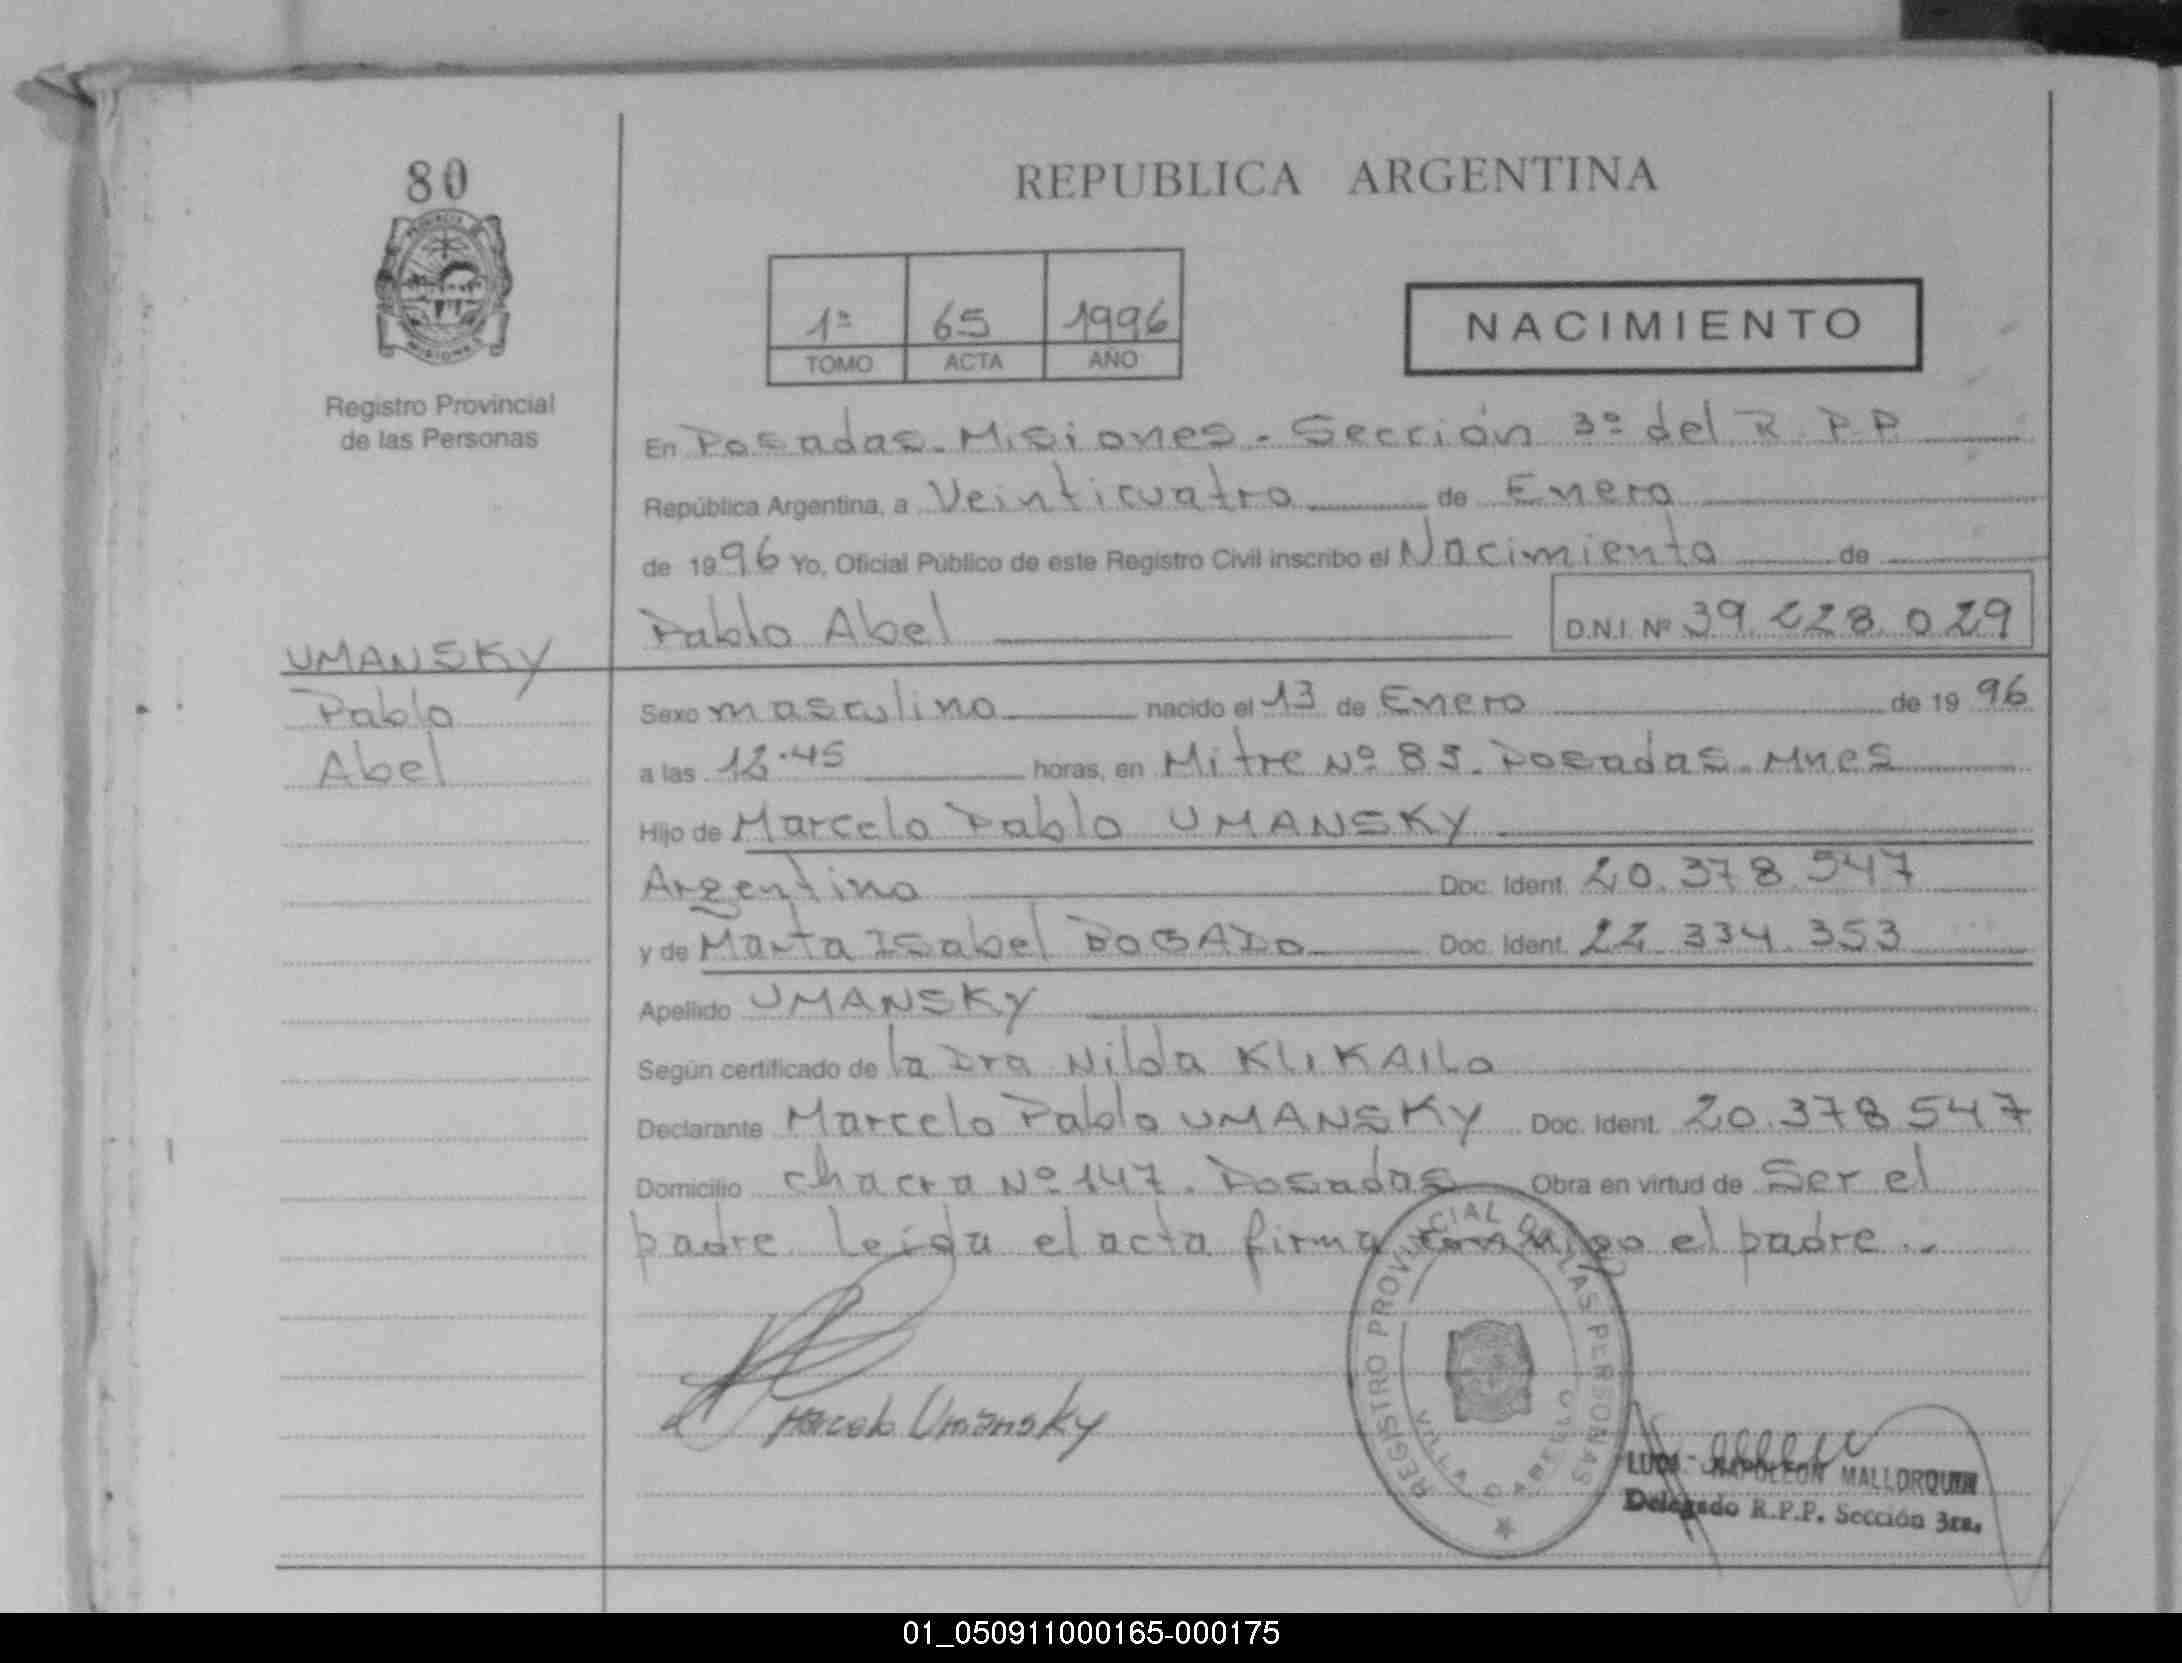 80
PROVINCIA
MISIONES
Registro Provincial
de las Personas
UMANSKY
Pablo
Abel
REPUBLICA ARGENTINA
1º 65 1996
TOMO ACTA AÑO
NACIMIENTO
En Posadas-Misiones-Sección 3º del R.P.P
República Argentina, a Veinticuatro de Enero
de 1996 Yo, Oficial Público de este Registro Civil inscribo el Nacimiento de
Pablo Abel D.N.I. Nº 39.228.029
Sexo masculino nacido el 13 de Enero de 1996
a las 12.45 horas, en Mitre Nº 85. Posadas. Mnes
Hijo de Marcelo Pablo UMANSKY
Argentino Doc. Ident. 20.378.547
y de Marta Isabel BOGADO Doc. Ident. 22.334.353
Apellido UMANSKY
Según certificado de la Dra Nilda KLIKAILO
Declarante Marcelo Pablo UMANSKY Doc. Ident. 20.378.547
Domicilio chacra Nº 147. Posadas Obra en virtud de Ser el
padre Leída el acta firma conmigo el padre..
Marcelo Umansky
REGISTRO PROVINCIAL DE LAS PERSONAS
VILLA CABELLO
NAPOLEON MALLORQUIN
Delegado R.P.P. Sección 3ra.
01_050911000165-000175